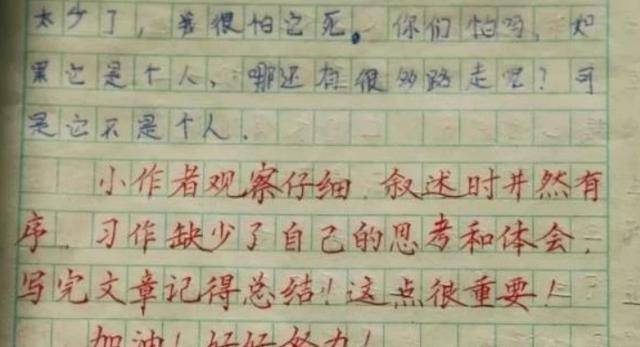 太少了，我很怕它死。你们怕吗，如
果它是个人，哪还有很多路走呢？可
是它不是个人.
小作者观察仔细，叙述时井然有
序，习作缺少了自己的思考和体会，
写完文章记得总结！这点很重要！
加油！好好努力！